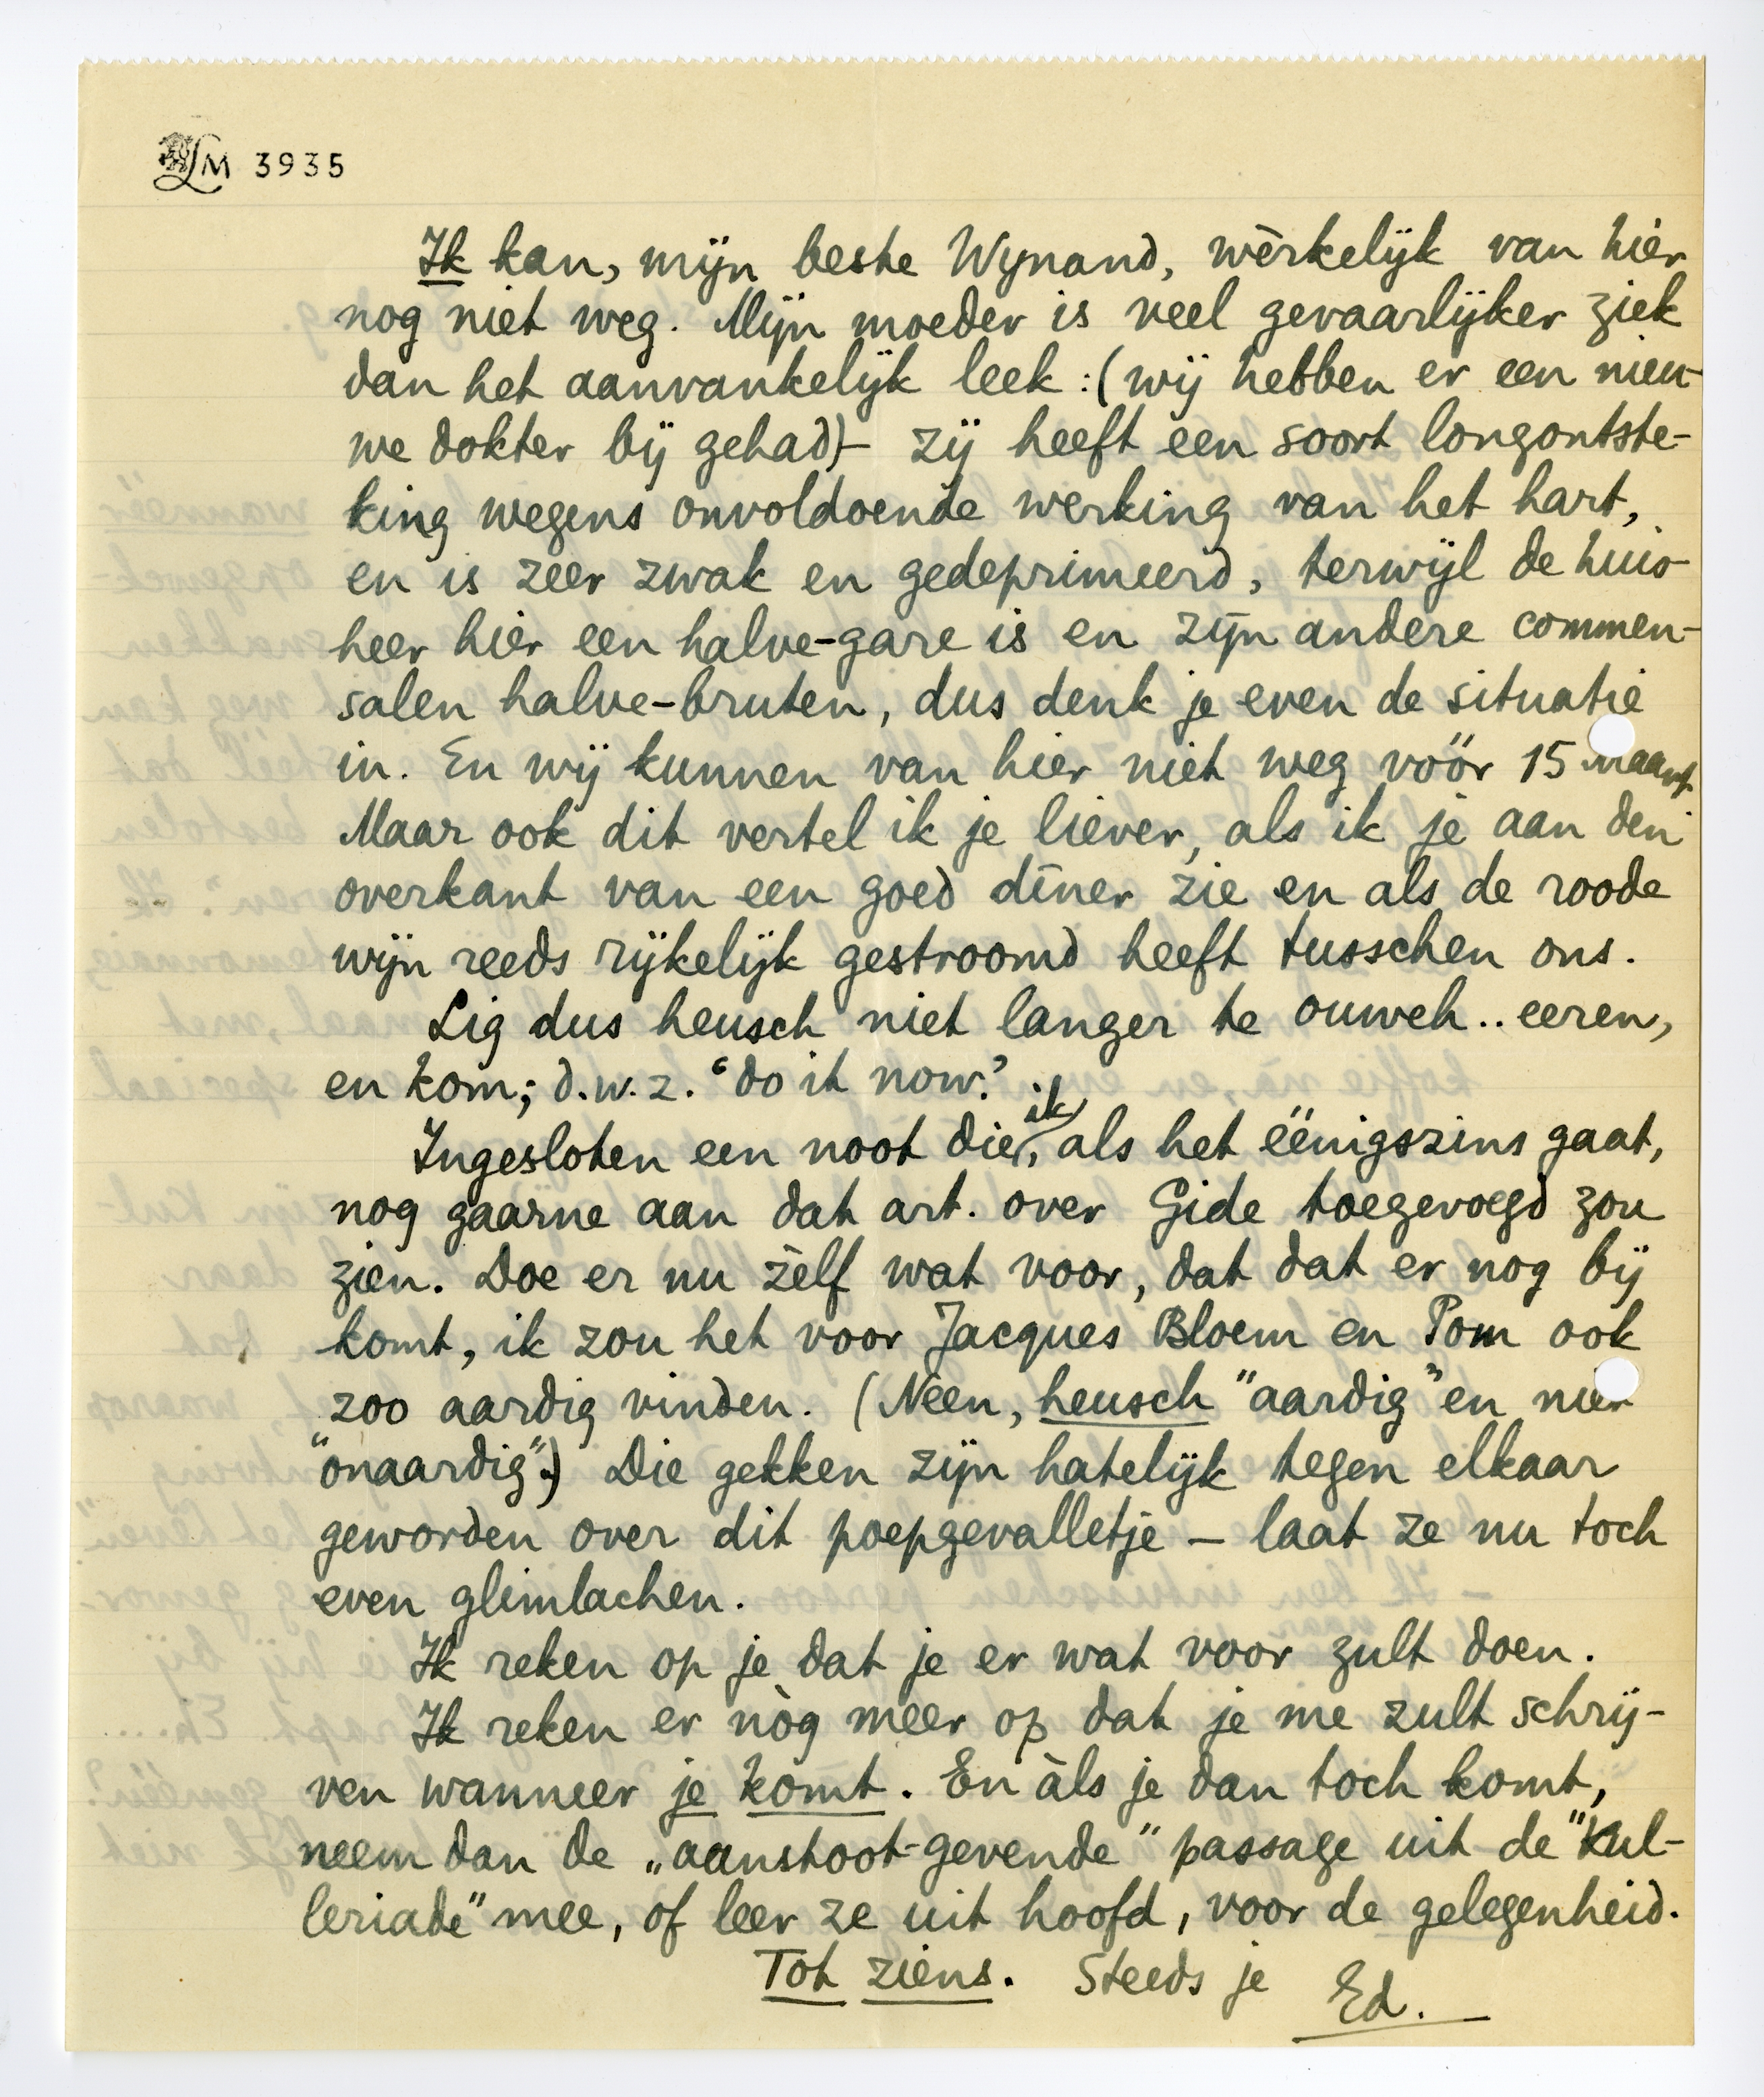 LM 3935
Ik kan, mijn beste Wynand, wèrkelijk van hier
nog niet weg. Mijn moeder is veel gevaarlijker ziek
dan het aanvankelijk leek: (wij hebben er een nieu-
we dokter bij gehad) - zij heeft een soort longontste-
king wegens onvoldoende werking van het hart,
en is zeer zwak en gedeprimeerd, terwijl de huis-
heer hier een halve-gare is en zijn andere commen-
salen halve-bruten, dus denk je even de situatie
in. En wij kunnen van hier niet weg vóór 15 maart.
Maar ook dit vertel ik je liever, als ik je aan den
overkant van een goed dîner zie en als de roode
wijn reeds rijkelijk gestroomd heeft tusschen ons.
Lig dus heusch niet langer te ouweh.. eeren,
en kom; d.w.z. “do it now.”
Ingesloten een noot die, ik als het éénigszins gaat,
nog gaarne aan dat art. over Gide toegevoegd zou
zien. Doe er nu zèlf wat voor, dat dat er nog bij
komt, ik zou het voor Jacques Bloem en Pom ook
zoo aardig vinden. (Neen, heusch “aardig” en niet
“onaardig”.) Die gekken zijn hatelijk tegen elkaar
geworden over dit poepgevalletje — laat ze nu toch
even glimlachen.
Ik reken op je dat je er wat voor zult doen.
Ik reken er nòg meer op dat je me zult schrij-
ven wanneer je komt. En àls je dan toch komt,
neem dan de „aanstoot-gevende” passage uit de “Kul-
leriade” mee, of leer ze uit hoofd, voor de gelegenheid.
Tot ziens. Steeds je Ed.